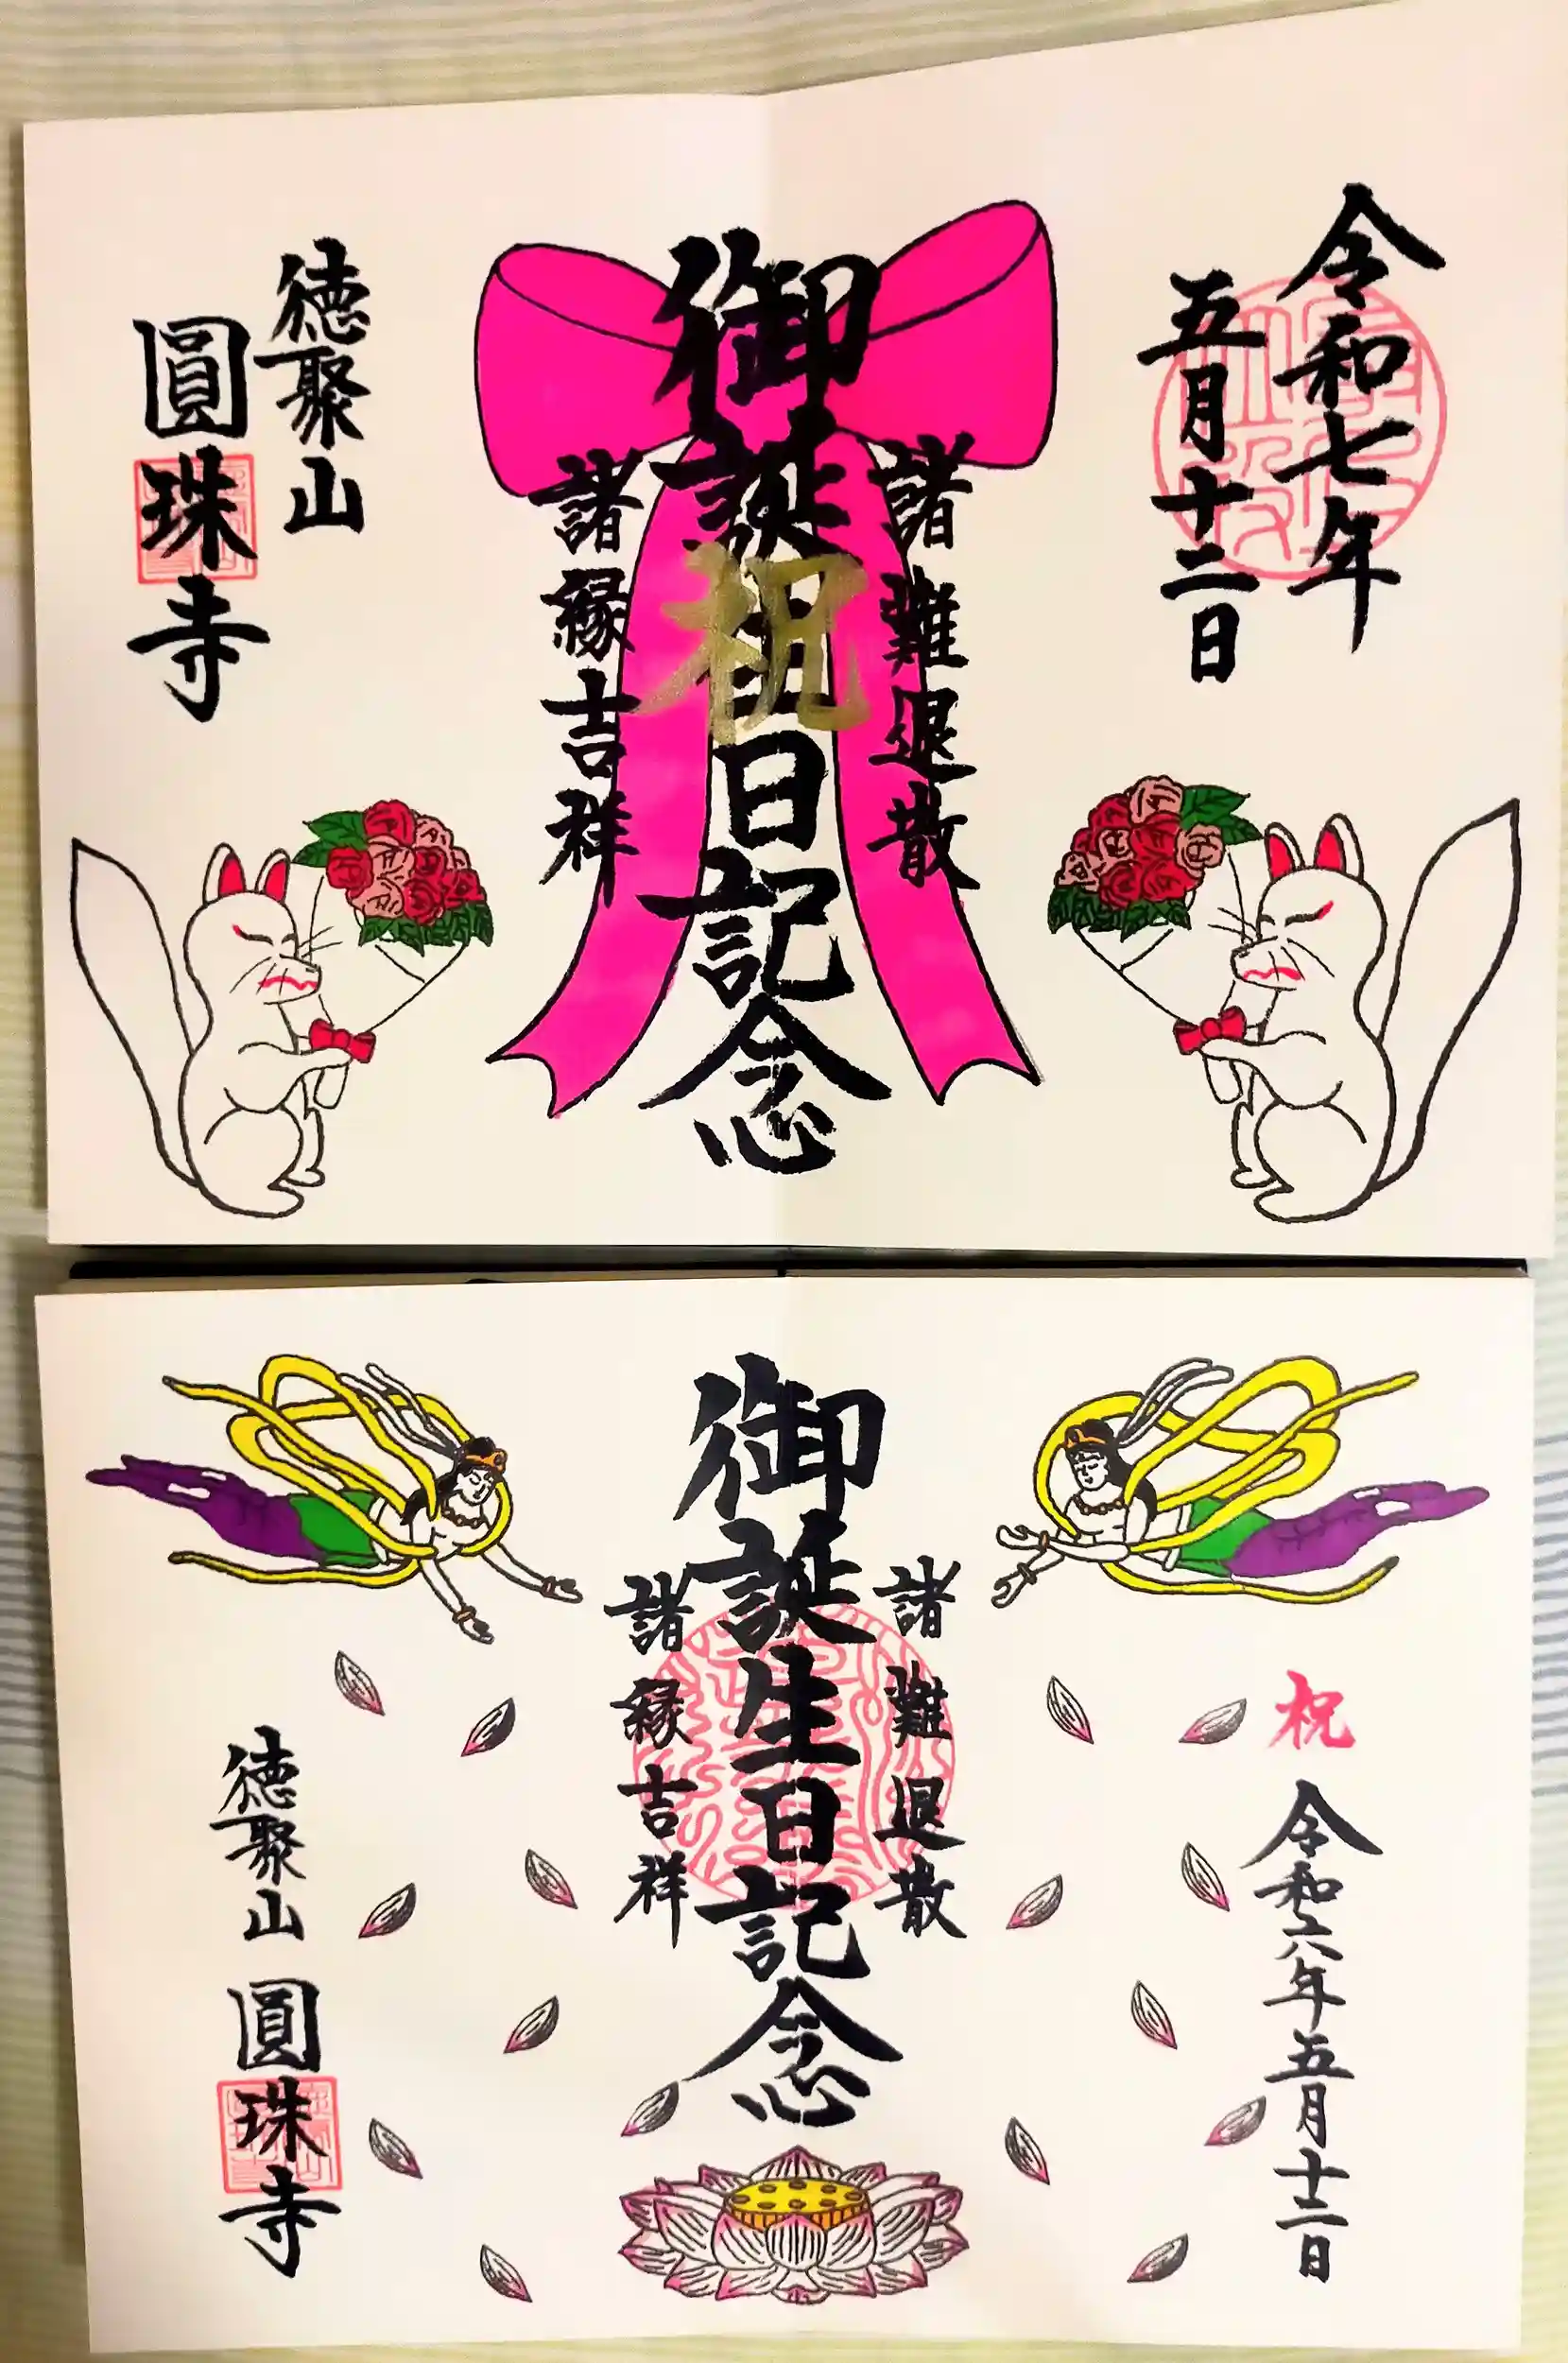 令和七年
五月十二日
諸難退散
御誕生日記念
祝
諸縁吉祥
徳聚山
圓珠寺
祝
令和六年五月十二日
諸難退散
御誕生日記念
諸縁吉祥
徳聚山
圓珠寺